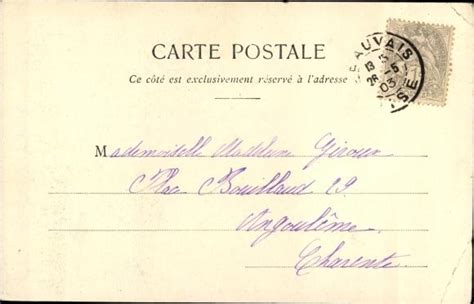 CARTE POSTALE
Ce côté est exclusivement réservé à l'adresse
BEAUVAIS
OISE
Mademoiselle Madeleine Giroux
Place Bouillaud 29
Angoulême
Charente